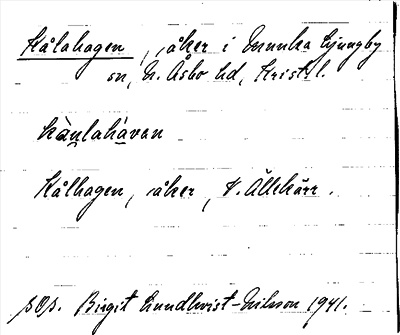 Kålahagen, åker i Munka Ljungby
sn, N. Åsbo hd, Krist. l.
kålahávan
Kålhagen, åker, V. Ällekärr.
Birgit Lundkvist-Nilsson 1941.